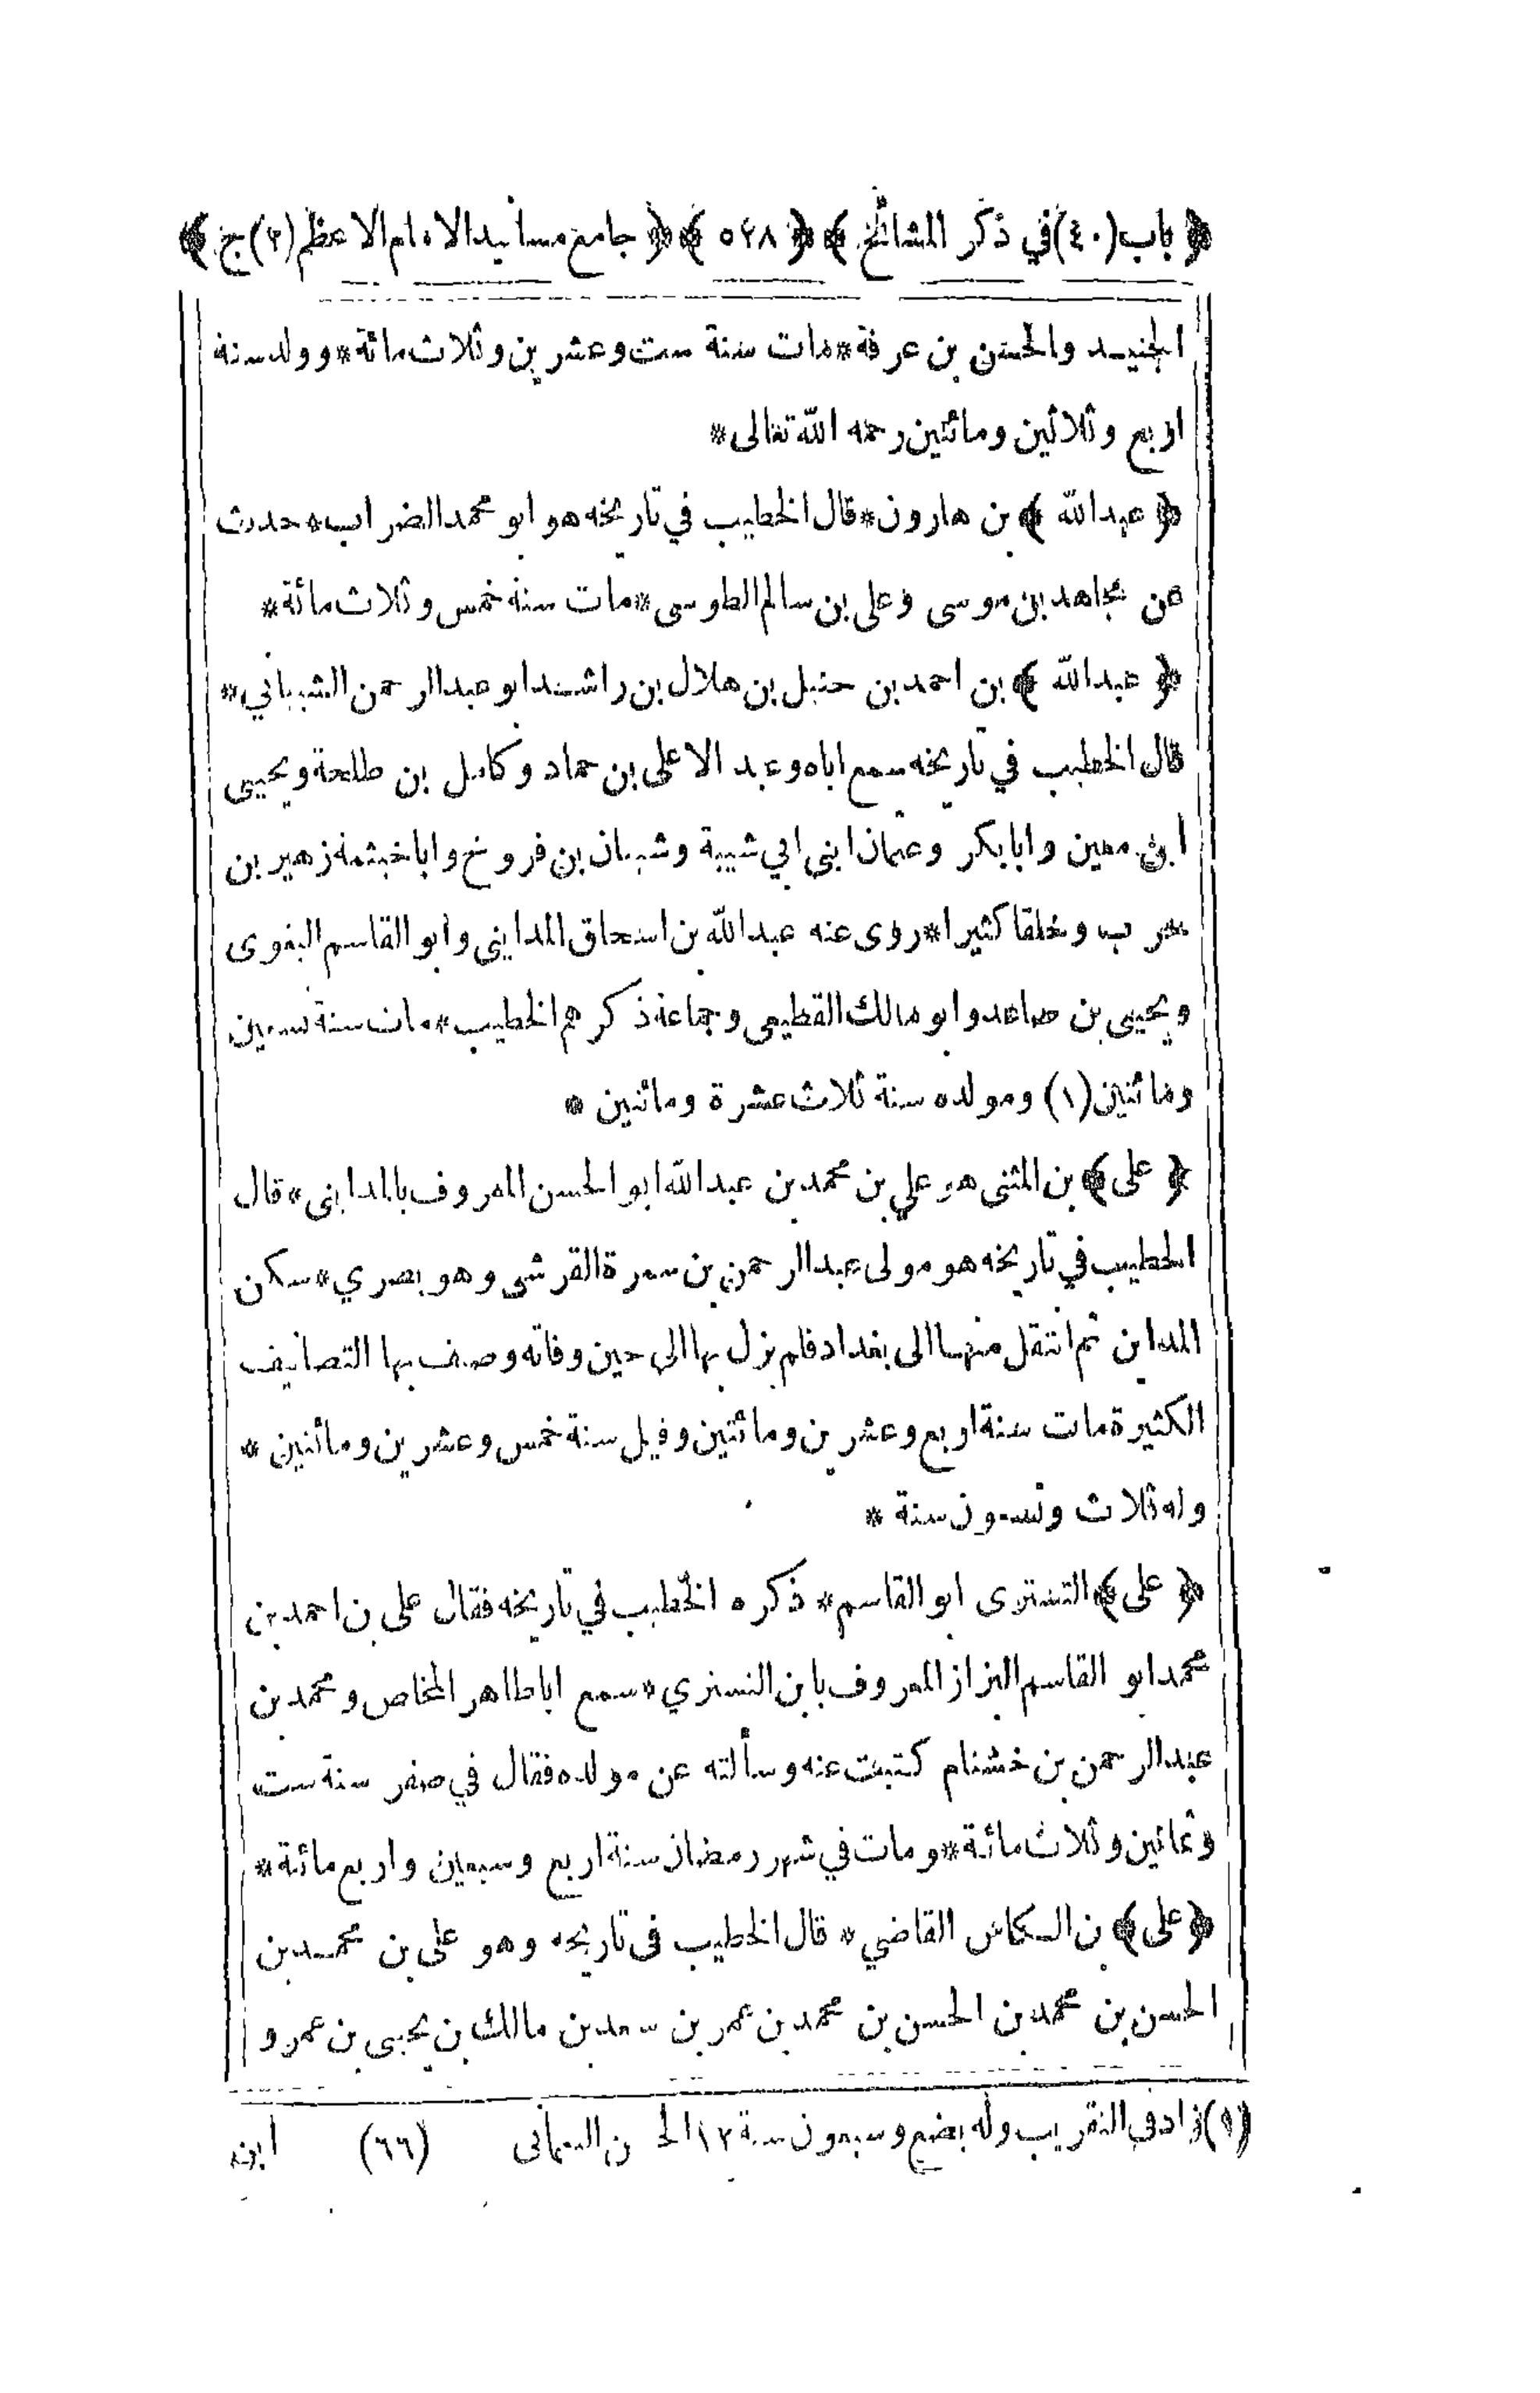 ﴿ باب (٤٠) في ذكر المشائخ ﴾ ﴿ ٥٢٨ ﴾ ﴿ جامع مسانيد الامام الاعظم (٢) ج ﴾
الجنيد والحسن بن عرفة * مات سنة ست وعشرين وثلاث مائة * وولد سنة
اربع وثلاثين ومائتين رحمه الله تعالى *
﴿ عبدالله ﴾ بن هارون * قال الخطيب في تاريخه هو ابو محمد الضراب * حدث
عن مجاهد بن موسى وعلى بن سالم الطوسى * مات سنة خمس وثلاث مائة *
﴿ عبدالله ﴾ بن احمد بن حنبل بن هلال بن راشد ابو عبدالرحمن الشيباني *
قال الخطيب في تاريخه سمع اباه وعبد الاعلى بن حماد وكامل بن طلحة ويحيى
ابن معين وابابكر وعثمان ابنى ابي شيبة وشيبان بن فروخ واباخيثمة زهير بن
حرب وخلقا كثيرا * روى عنه عبدالله بن اسحاق المدايني وابو القاسم البغوى
ويحيى بن صاعد وابو مالك القطيعى وجماعة ذكرهم الخطيب * مات سنة تسعين
ومائتين (١) ومولده سنة ثلاث عشرة ومائتين *
﴿ على ﴾ بن المثنى هو علي بن محمد بن عبدالله ابو الحسن المعروف بالمدايني * قال
الخطيب في تاريخه هو مولى عبدالرحمن بن سمرة القرشى وهو بصري * سكن
المداين ثم انتقل منها الى بغداد فلم يزل بها الى حين وفاته وصنف بها التصانيف
الكثيرة مات سنة اربع وعشرين ومائتين وقيل سنة خمس وعشرين ومائتين *
وله ثلاث وتسعون سنة *
﴿ على ﴾ التسترى ابو القاسم * ذكره الخطيب في تاريخه فقال على بن احمد بن
محمد ابو القاسم البزاز المعروف بابن التستري * سمع اباطاهر المخلص ومحمد بن
عبدالرحمن بن خشنام كتبت عنه وسألته عن مولده فقال في صفر سنة ست
وثمانين وثلاث مائة * ومات في شهر رمضان سنة اربع وسبعين واربع مائة *
﴿ على ﴾ بن الكاس القاضي * قال الخطيب في تاريخه وهو على بن محمد بن
الحسن بن محمد بن الحسن بن محمد بن عمر بن سعد بن مالك بن يحيى بن عمرو
(١) زاد في التقريب وله بضع وسبعون سنة ١٢ الحسن النعمانى (٦٦) ابن